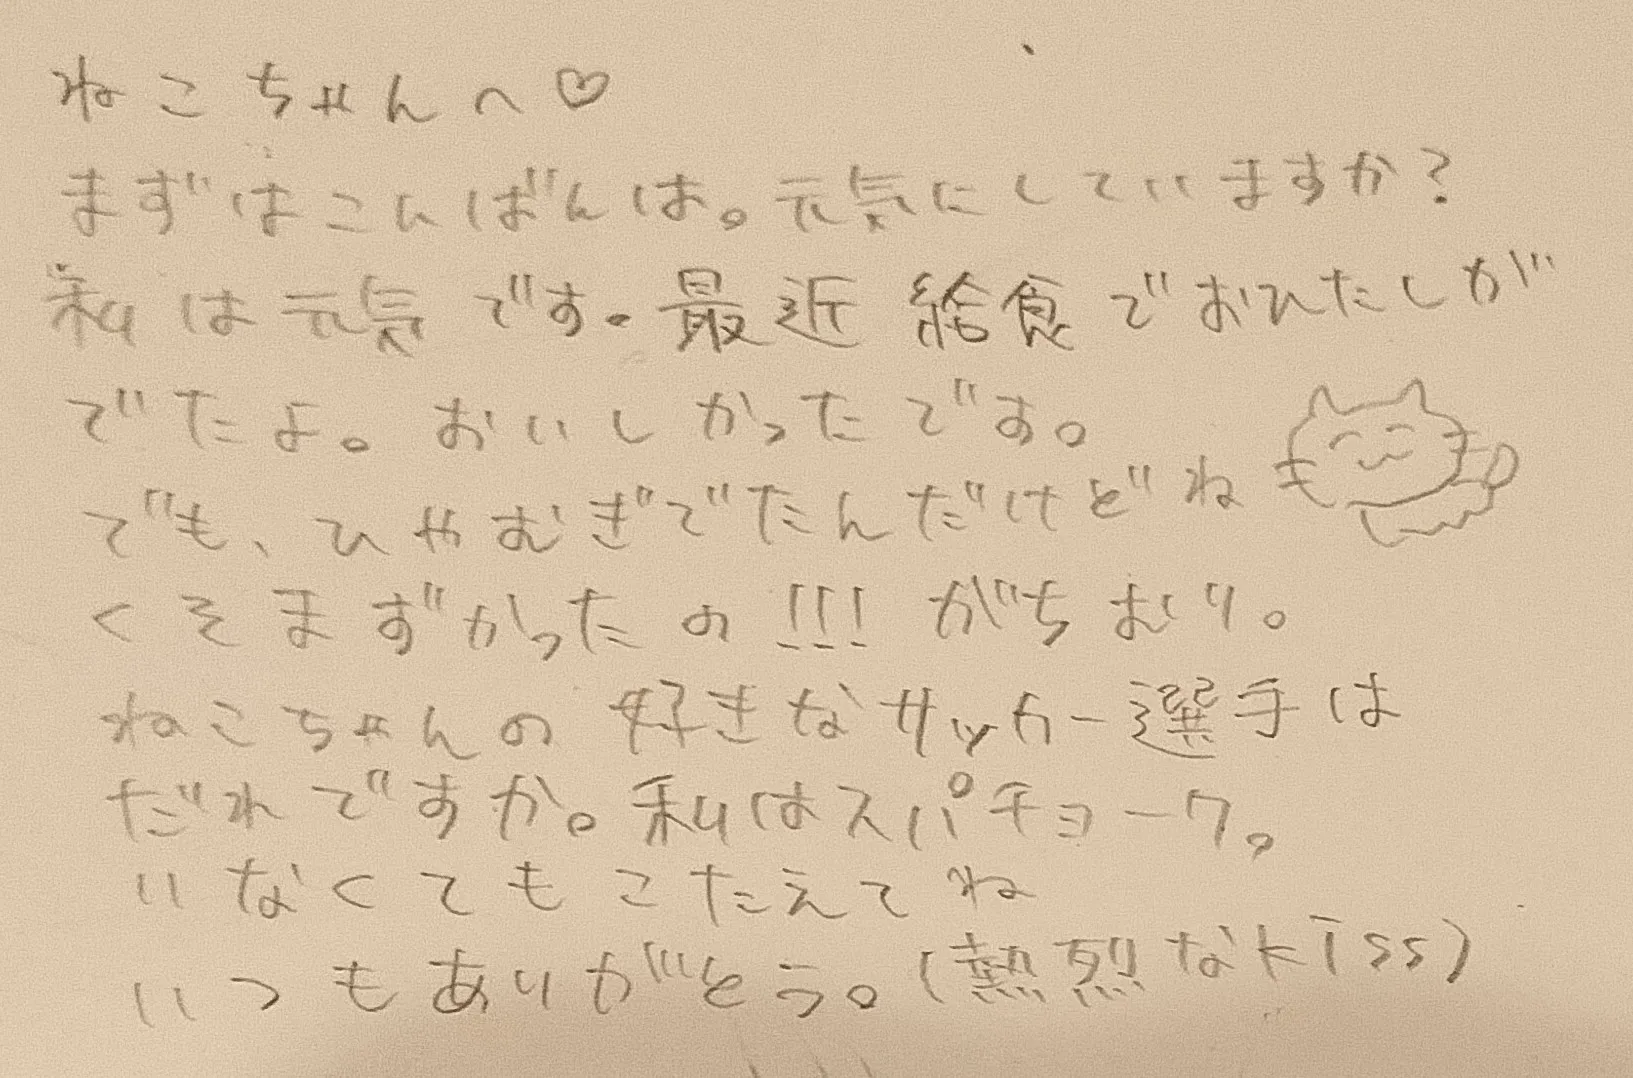 ねこちゃんへ♡
まずはこんばんは。元気にしていますか?
私は元気です。最近給食でおひたしが
でたよ。おいしかったです。
でも、ひやむぎでたんだけどね
くそまずかったの!!!がちむり。
ねこちゃんの好きなサッカー選手は
だれですか。私はスパチョーク。
いなくてもこたえてね
いつもありがとう。(熱烈なkiss)